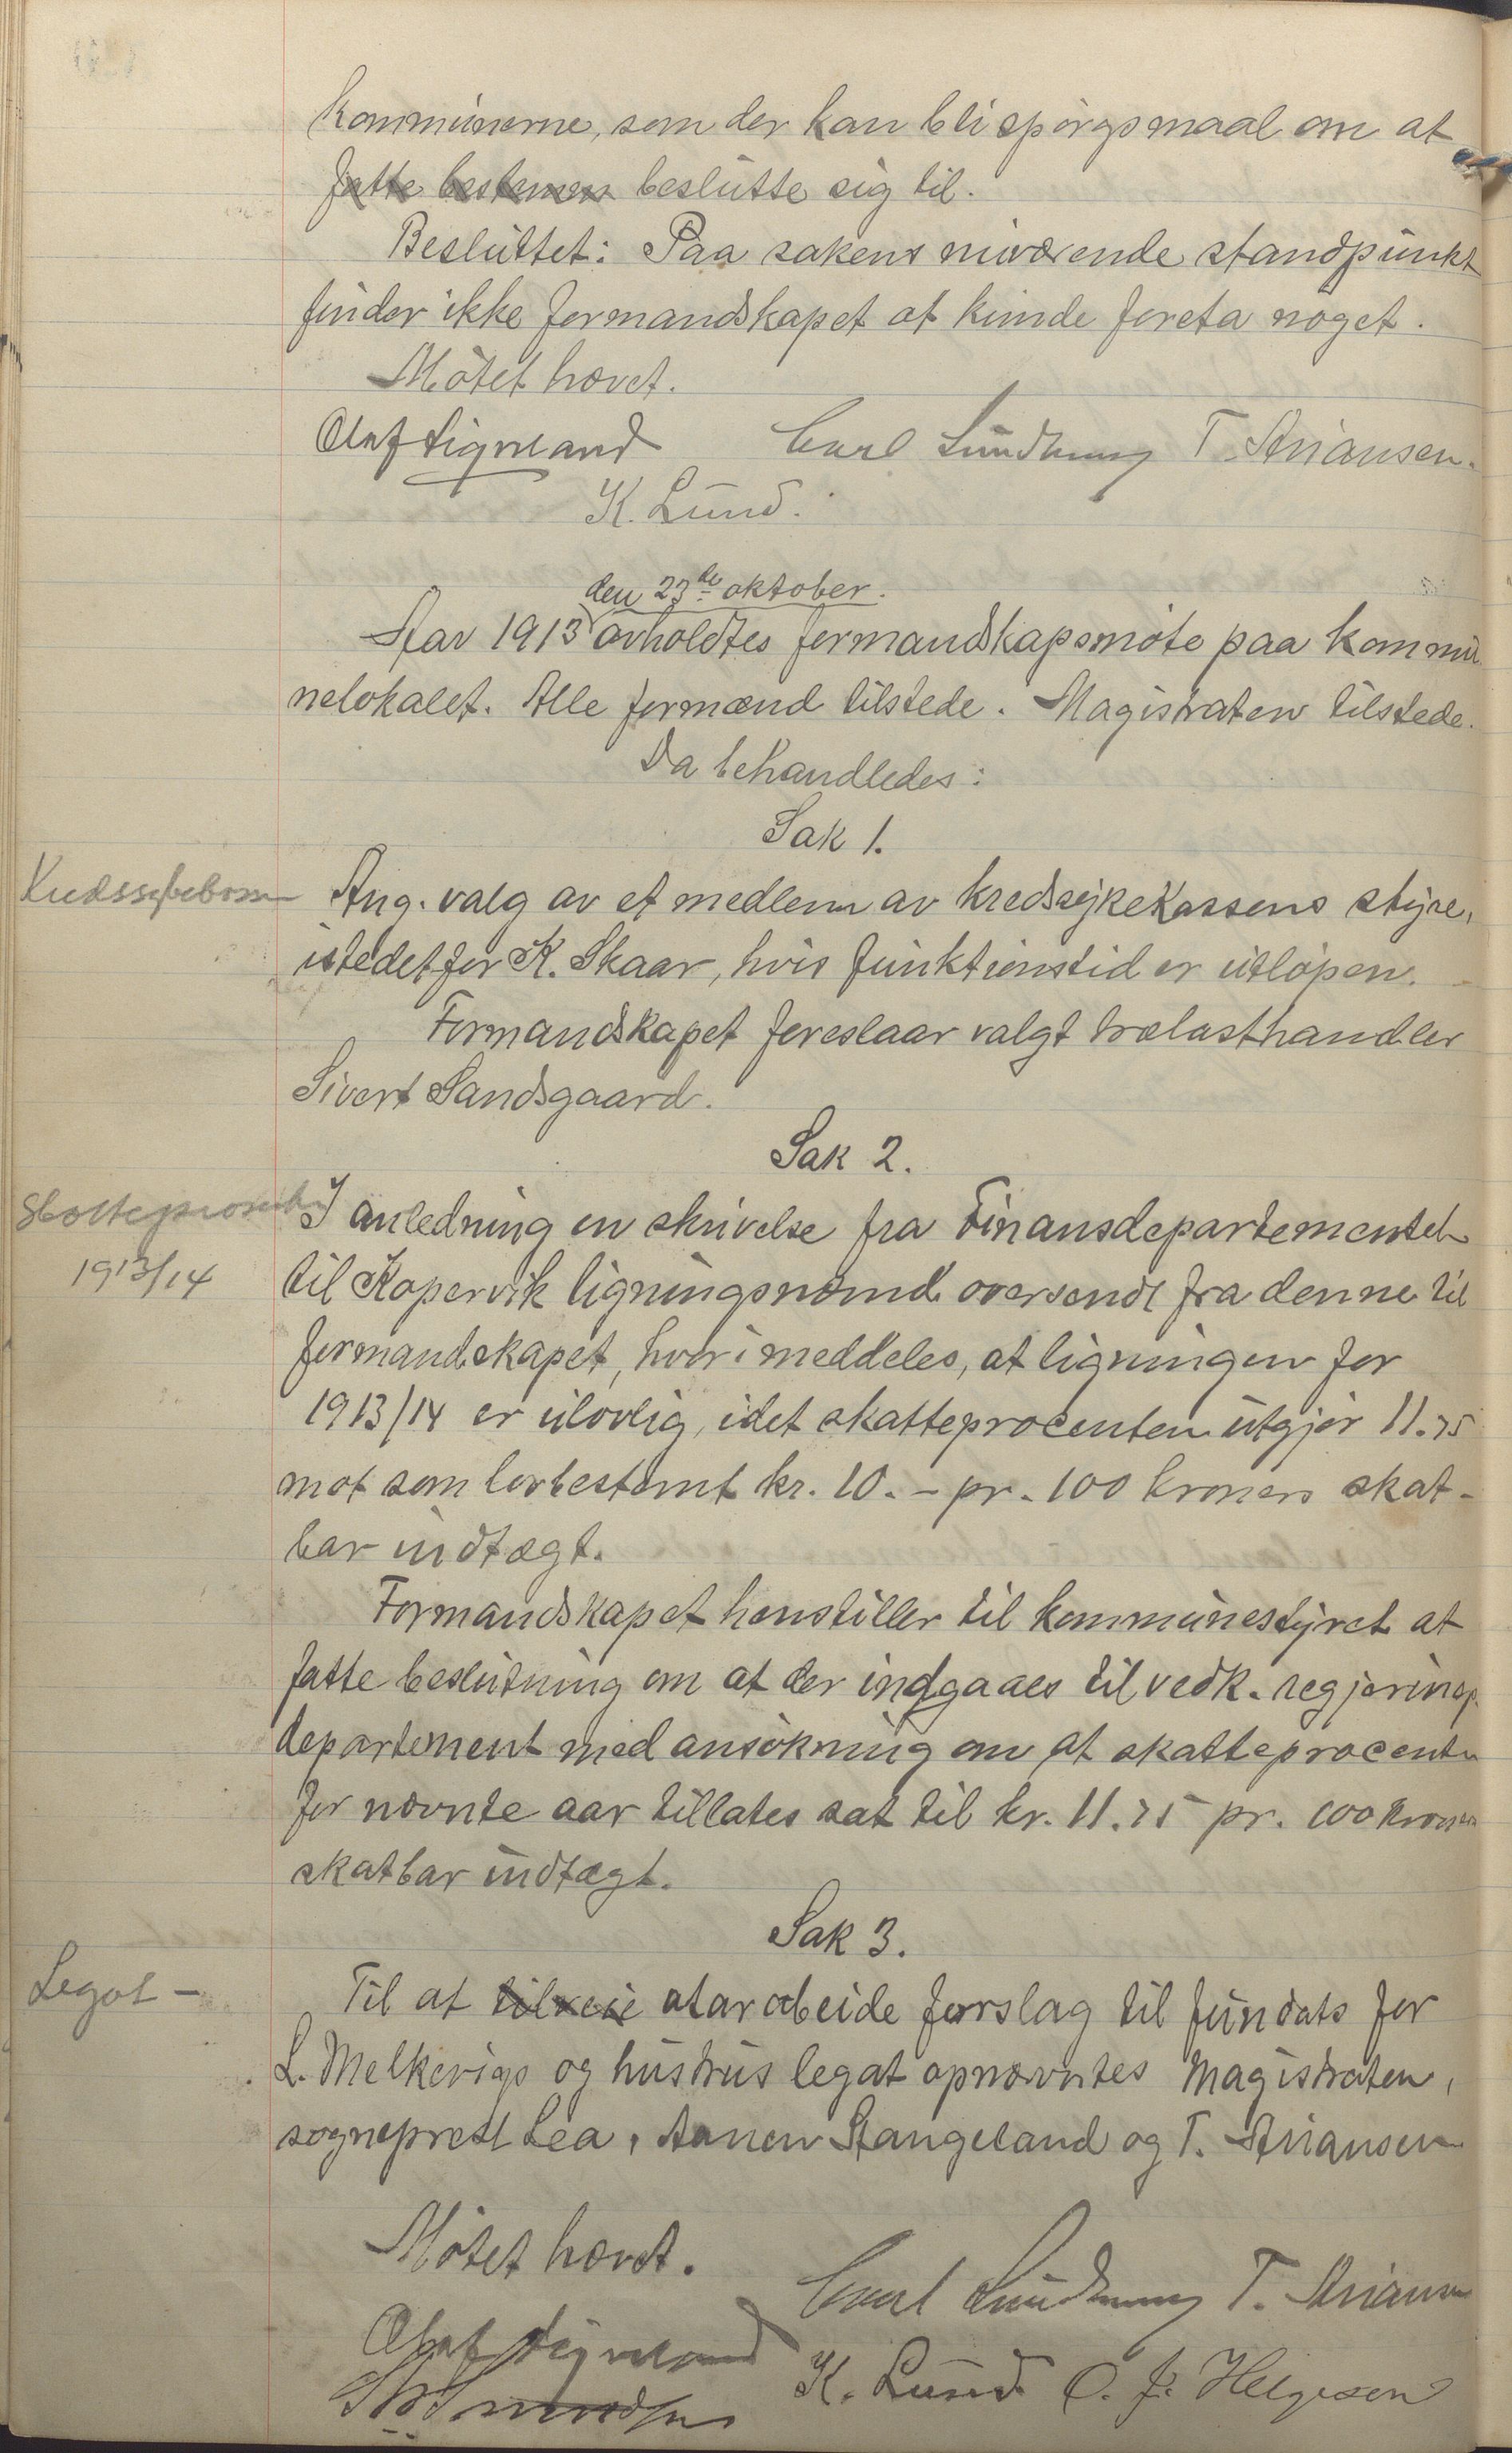 kommunerne, som der kan bli spörgsmaal om at
fatte bestemm beslutte sig til.
Besluttet: Paa sakens nuværende standpunkt
finder ikke formandskapet at kunde foreta noget.
Mötet hævet.
Olaf Sigvaland Carl T. Ariansen.
K. Lund.
den 23de oktober.
Aar 1913 avholdtes formandskapsmöte paa kommu
nelokalet. Alle formænd tilstede. Magistraten tilstede.
Da behandledes:
Sak 1.
Ang. valg av et medlem av kredssykekassens styre,
istedetfor K. Skaar, hvis funktionstid er utlöpen.
Formandskapet foreslaar valgt trælasthandler
Sivert Sandsgaard.
Sak 2.
Skatteprosenten
1913/14
I anledning en skrivelse fra Finansdepartementet
til Kopervik ligningsnævnd oversendt fra denne til
formandskapet, hvori meddeles, at ligningen for
1913/14 er ulovlig, idet skatteprocenten utgjör 11.75
mot som lovbestemt kr. 10.- pr. 100 kroners skat-
bar indtægt.
Formandskapet henstiller til kommunestyret at
fatte beslutning om at der indgaaes til vedk. regjerings
departement med ansökning om at skatteprocenten
for nævnte aar tillates sat til kr. 11.75 pr. 100 kroners
skatbar indtægt.
Sak 3.
Legat -
Til at tilveie utarbeide forslag til fundats for
L. Melkevigs og hustrus legat opnævntes magistraten,
sogneprest Lea, Stangeland og T. Ariansen
Mötet hævet.
Carl T. Ariansen
Olaf Sigvaland
K. Lund O. J. Helgesen